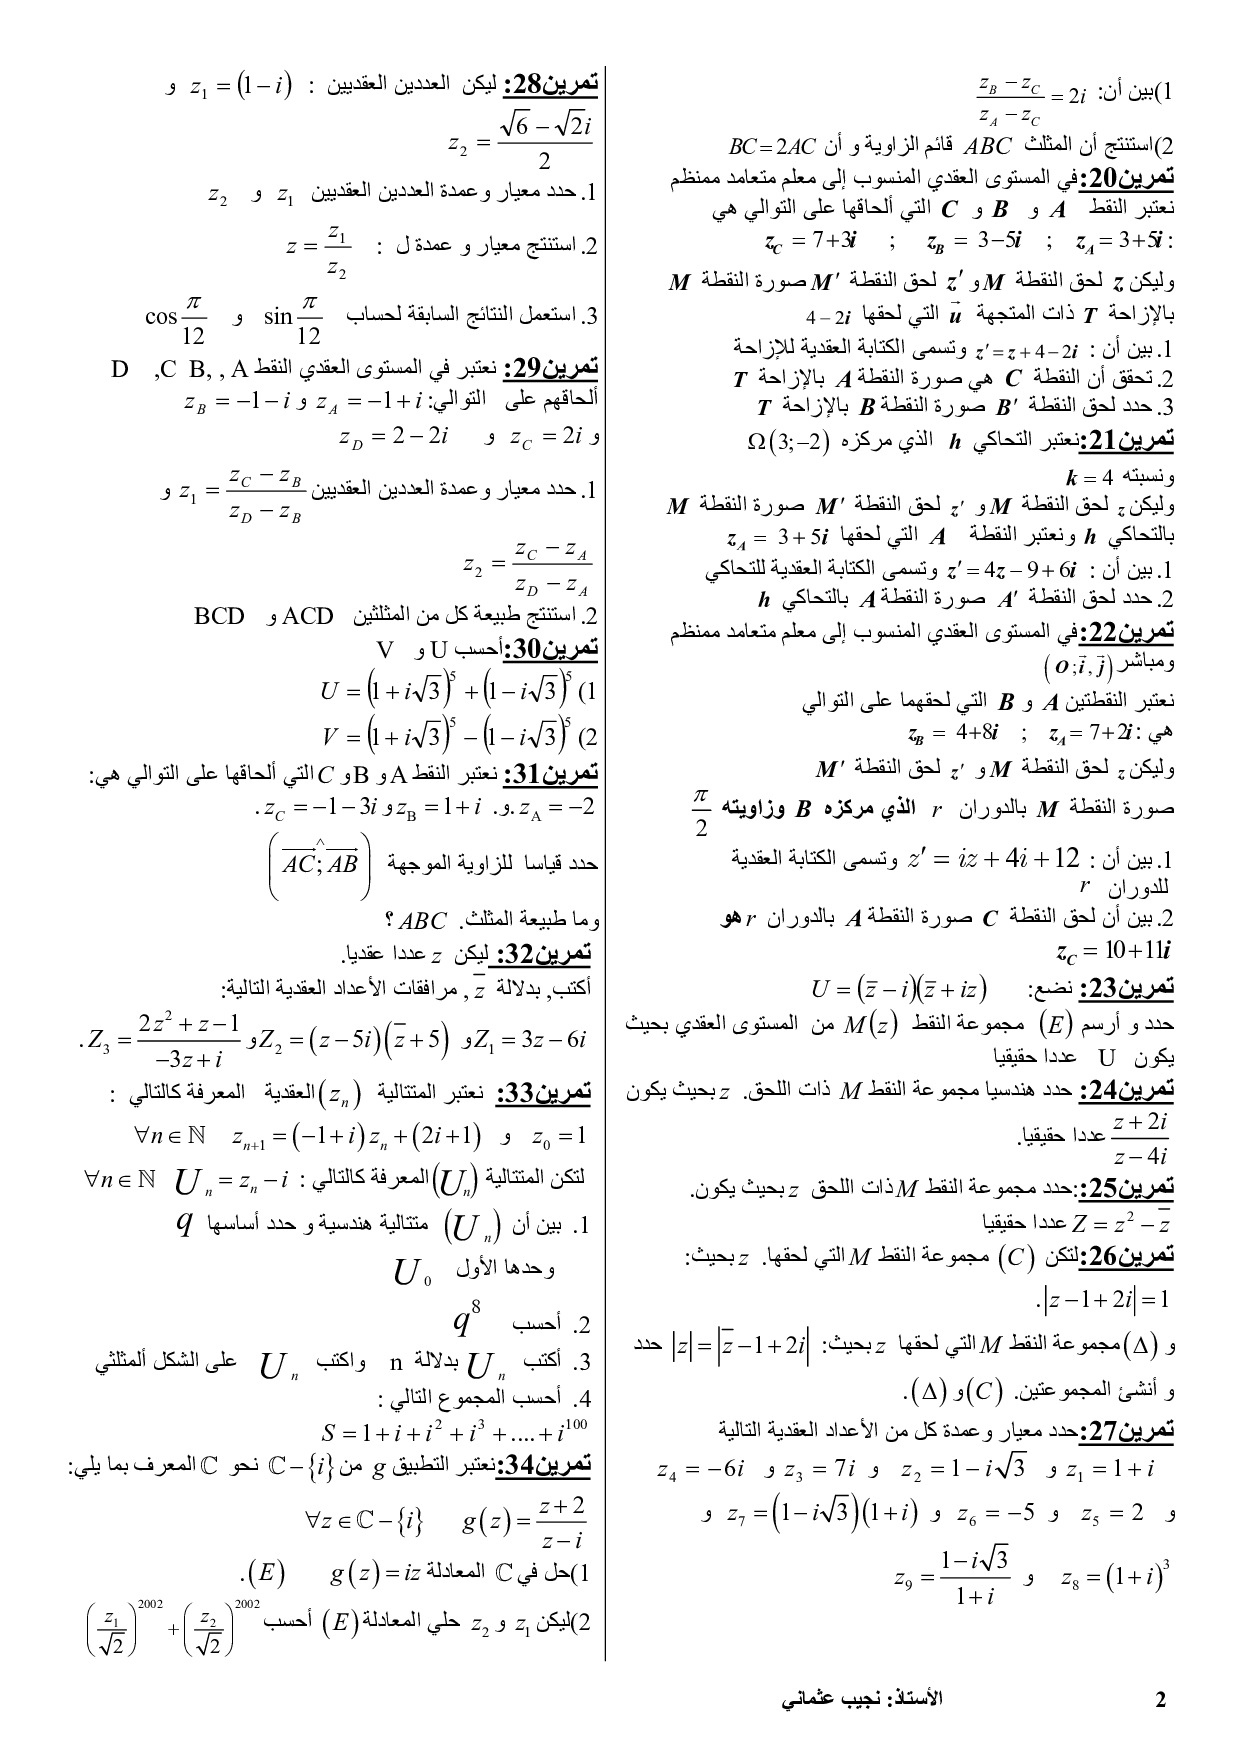 1)بين أن: (z_B − z_C)/(z_A − z_C) = 2i
2)استنتج أن المثلث ABC قائم الزاوية و أن BC = 2AC
تمرين20:في المستوى العقدي المنسوب إلى معلم متعامد ممنظم
نعتبر النقط A و B و C التي ألحاقها على التوالي هي
: z_A = 3+5i ; z_B = 3−5i ; z_C = 7+3i
وليكن z لحق النقطة M و z′ لحق النقطة M′ صورة النقطة M
بالإزاحة T ذات المتجهة u⃗ التي لحقها 4 − 2i
1. بين أن : z′ = z + 4 − 2i وتسمى الكتابة العقدية للإزاحة
2. تحقق أن النقطة C هي صورة النقطة A بالإزاحة T
3. حدد لحق النقطة B′ صورة النقطة B بالإزاحة T
تمرين21:نعتبر التحاكي h الذي مركزه Ω(3;−2)
ونسبته k = 4
وليكن z لحق النقطة M و z′ لحق النقطة M′ صورة النقطة M
بالتحاكي h ونعتبر النقطة A التي لحقها z_A = 3+5i
1. بين أن : z′ = 4z − 9 + 6i وتسمى الكتابة العقدية للتحاكي
2. حدد لحق النقطة A′ صورة النقطة A بالتحاكي h
تمرين22:في المستوى العقدي المنسوب إلى معلم متعامد ممنظم
ومباشر (o; i⃗, j⃗)
نعتبر النقطتين A و B التي لحقهما على التوالي
هي : z_A = 7+2i ; z_B = 4+8i
وليكن z لحق النقطة M و z′ لحق النقطة M′
صورة النقطة M بالدوران r الذي مركزه B وزاويته π/2
1. بين أن : z′ = iz + 4i + 12 وتسمى الكتابة العقدية
للدوران r
2. بين أن لحق النقطة C صورة النقطة A بالدوران r هو
z_C = 10+11i
تمرين23: نضع: U = (z̄ − i)(z̄ + iz)
حدد و أرسم (E) مجموعة النقط M(z) من المستوى العقدي بحيث
يكون U عددا حقيقيا
تمرين24: حدد هندسيا مجموعة النقط M ذات اللحق. z بحيث يكون
(z + 2i)/(z − 4i) عددا حقيقيا.
تمرين25::حدد مجموعة النقط M ذات اللحق z بحيث يكون.
Z = z² − z̄ عددا حقيقيا
تمرين26:لتكن (C) مجموعة النقط M التي لحقها. z بحيث:
|z − 1 + 2i| = 1 .
و (Δ) مجموعة النقط M التي لحقها z بحيث: |z| = |z̄ − 1 + 2i| حدد
و أنشئ المجموعتين. (C) و (Δ).
تمرين27:حدد معيار وعمدة كل من الأعداد العقدية التالية
z₁ = 1 + i و z₂ = 1 − i√3 و z₃ = 7i و z₄ = −6i
و z₅ = 2 و z₆ = −5 و z₇ = (1 − i√3)(1 + i) و
z₈ = (1 + i)³ و z₉ = (1 − i√3)/(1 + i)
تمرين28: ليكن العددين العقديين : z₁ = (1 − i) و
z₂ = (√6 − √2i)/2
1. حدد معيار وعمدة العددين العقديين z₁ و z₂
2. استنتج معيار و عمدة ل : z = z₁/z₂
3. استعمل النتائج السابقة لحساب sin π/12 و cos π/12
تمرين29: نعتبر في المستوى العقدي النقط A , ,B C, D
ألحاقهم على التوالي: z_A = −1 + i و z_B = −1 − i
و z_C = 2i و z_D = 2 − 2i
1. حدد معيار وعمدة العددين العقديين z₁ = (z_C − z_B)/(z_D − z_B) و
z₂ = (z_C − z_A)/(z_D − z_A)
2. استنتج طبيعة كل من المثلثين ACD و BCD
تمرين30:أحسب U و V
1) U = (1 + i√3)⁵ + (1 − i√3)⁵
2) V = (1 + i√3)⁵ − (1 − i√3)⁵
تمرين31: نعتبر النقط A و B و C التي ألحاقها على التوالي هي:
z_A = −2 .و. z_B = 1 + i و z_C = −1 − 3i .
حدد قياسا للزاوية الموجهة (AC;^AB)
وما طبيعة المثلث. ABC ؟
تمرين32: ليكن z عددا عقديا.
أكتب, بدلالة z̄ , مرافقات الأعداد العقدية التالية:
Z₁ = 3z − 6i و Z₂ = (z − 5i)(z̄ + 5) و Z₃ = (2z² + z − 1)/(−3z + i) .
تمرين33: نعتبر المتتالية (z_n) العقدية المعرفة كالتالي :
z₀ = 1 و z_{n+1} = (−1 + i)z_n + (2i + 1) ∀n ∈ ℕ
لتكن المتتالية (U_n) المعرفة كالتالي : U_n = z_n − i ∀n ∈ ℕ
1. بين أن (U_n) متتالية هندسية و حدد أساسها q
وحدها الأول U₀
2. أحسب q⁸
3. أكتب U_n بدلالة n واكتب U_n على الشكل ألمثلثي
4. أحسب المجموع التالي :
S = 1 + i + i² + i³ + .... + i¹⁰⁰
تمرين34:نعتبر التطبيق g من ℂ − {i} نحو ℂ المعرف بما يلي:
g(z) = (z + 2)/(z − i) ∀z ∈ ℂ − {i}
1)حل في ℂ المعادلة g(z) = iz (E).
2)ليكن z₁ و z₂ حلي المعادلة (E) أحسب (z₁/√2)²⁰⁰² + (z₂/√2)²⁰⁰²
2 الأستاذ: نجيب عثماني